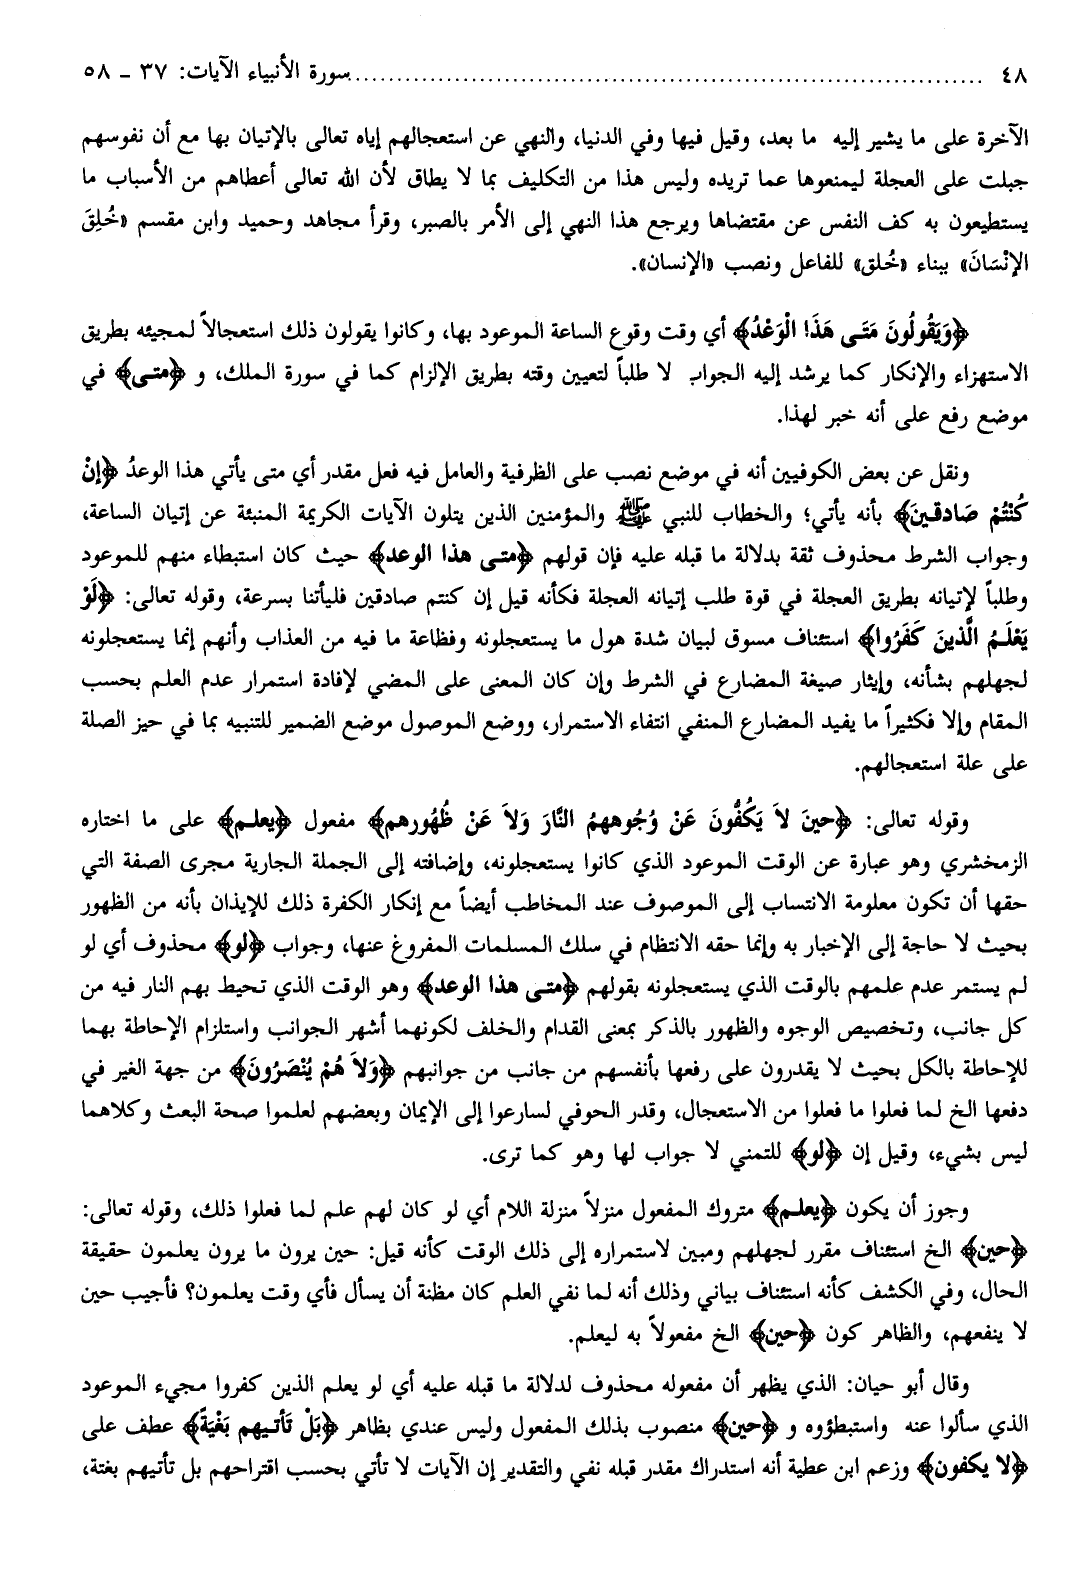 ٤٨ ........................................................................ سورة الأنبياء الآيات: ٣٧ - ٥٨
الآخرة على ما يشير إليه ما بعد، وقيل فيها وفي الدنيا، والنهي عن استعجالهم إياه تعالى بالإتيان بها مع أن نفوسهم
جبلت على العجلة ليمنعوها عما تريده وليس هذا من التكليف بما لا يطاق لأن الله تعالى أعطاهم من الأسباب ما
يستطيعون به كف النفس عن مقتضاها ويرجع هذا النهي إلى الأمر بالصبر، وقرأ مجاهد وحميد وابن مقسم «خُلِقَ
الإنْسَانَ» ببناء «خُلق» للفاعل ونصب «الإنسان».
﴿وَيَقُولُونَ مَتَى هَذَا الْوَعْدُ﴾ أي وقت وقوع الساعة الموعود بها، وكانوا يقولون ذلك استعجالاً لمجيئه بطريق
الاستهزاء والإنكار كما يرشد إليه الجواب لا طلباً لتعيين وقته بطريق الإلزام كما في سورة الملك، و ﴿متى﴾ في
موضع رفع على أنه خبر لهذا.
ونقل عن بعض الكوفيين أنه في موضع نصب على الظرفية والعامل فيه فعل مقدر أي متى يأتي هذا الوعدُ ﴿إنْ
كُنْتُمْ صَادقينَ﴾ بأنه يأتي؛ والخطاب للنبي ﷺ والمؤمنين الذين يتلون الآيات الكريمة المنبئة عن إتيان الساعة،
وجواب الشرط محذوف ثقة بدلالة ما قبله عليه فإن قولهم ﴿متى هذا الوعد﴾ حيث كان استبطاء منهم للموعود
وطلباً لإتيانه بطريق العجلة في قوة طلب إتيانه العجلة فكأنه قيل إن كنتم صادقين فليأتنا بسرعة، وقوله تعالى: ﴿لَوْ
يَعْلَمُ الَّذينَ كَفَرُوا﴾ استئناف مسوق لبيان شدة هول ما يستعجلونه وفظاعة ما فيه من العذاب وأنهم إنما يستعجلونه
لجهلهم بشأنه، وإيثار صيغة المضارع في الشرط وإن كان المعنى على المضي لإفادة استمرار عدم العلم بحسب
المقام وإلا فكثيراً ما يفيد المضارع المنفي انتفاء الاستمرار، ووضع الموصول موضع الضمير للتنبيه بما في حيز الصلة
على علة استعجالهم.
وقوله تعالى: ﴿حينَ لاَ يَكُفُّونَ عَنْ وُجُوههمُ النَّارَ وَلاَ عَنْ ظُهُورهم﴾ مفعول ﴿يعلم﴾ على ما اختاره
الزمخشري وهو عبارة عن الوقت الموعود الذي كانوا يستعجلونه، وإضافته إلى الجملة الجارية مجرى الصفة التي
حقها أن تكون معلومة الانتساب إلى الموصوف عند المخاطب أيضاً مع إنكار الكفرة ذلك للإيذان بأنه من الظهور
بحيث لا حاجة إلى الإخبار به وإنما حقه الانتظام في سلك المسلمات المفروغ عنها، وجواب ﴿لو﴾ محذوف أي لو
لم يستمر عدم علمهم بالوقت الذي يستعجلونه بقولهم ﴿متى هذا الوعد﴾ وهو الوقت الذي تحيط بهم النار فيه من
كل جانب، وتخصيص الوجوه والظهور بالذكر بمعنى القدام والخلف لكونهما أشهر الجوانب واستلزام الإحاطة بهما
للإحاطة بالكل بحيث لا يقدرون على رفعها بأنفسهم من جانب من جوانبهم ﴿وَلاَ هُمْ يُنْصَرُونَ﴾ من جهة الغير في
دفعها الخ لما فعلوا ما فعلوا من الاستعجال، وقدر الحوفي لسارعوا إلى الإيمان وبعضهم لعلموا صحة البعث وكلاهما
ليس بشيء، وقيل إن ﴿لو﴾ للتمني لا جواب لها وهو كما ترى.
وجوز أن يكون ﴿يعلم﴾ متروك المفعول منزلاً منزلة اللام أي لو كان لهم علم لما فعلوا ذلك، وقوله تعالى:
﴿حين﴾ الخ استئناف مقرر لجهلهم ومبين لاستمراره إلى ذلك الوقت كأنه قيل: حين يرون ما يرون يعلمون حقيقة
الحال، وفي الكشف كأنه استئناف بياني وذلك أنه لما نفي العلم كان مظنة أن يسأل فأي وقت يعلمون؟ فأجيب حين
لا ينفعهم، والظاهر كون ﴿حين﴾ الخ مفعولاً به ليعلم.
وقال أبو حيان: الذي يظهر أن مفعوله محذوف لدلالة ما قبله عليه أي لو يعلم الذين كفروا مجيء الموعود
الذي سألوا عنه واستبطؤوه و ﴿حين﴾ منصوب بذلك المفعول وليس عندي بظاهر ﴿بَلْ تَأتيهم بَغْتَةً﴾ عطف على
﴿لا يكفون﴾ وزعم ابن عطية أنه استدراك مقدر قبله نفي والتقدير إن الآيات لا تأتي بحسب اقتراحهم بل تأتيهم بغتة،